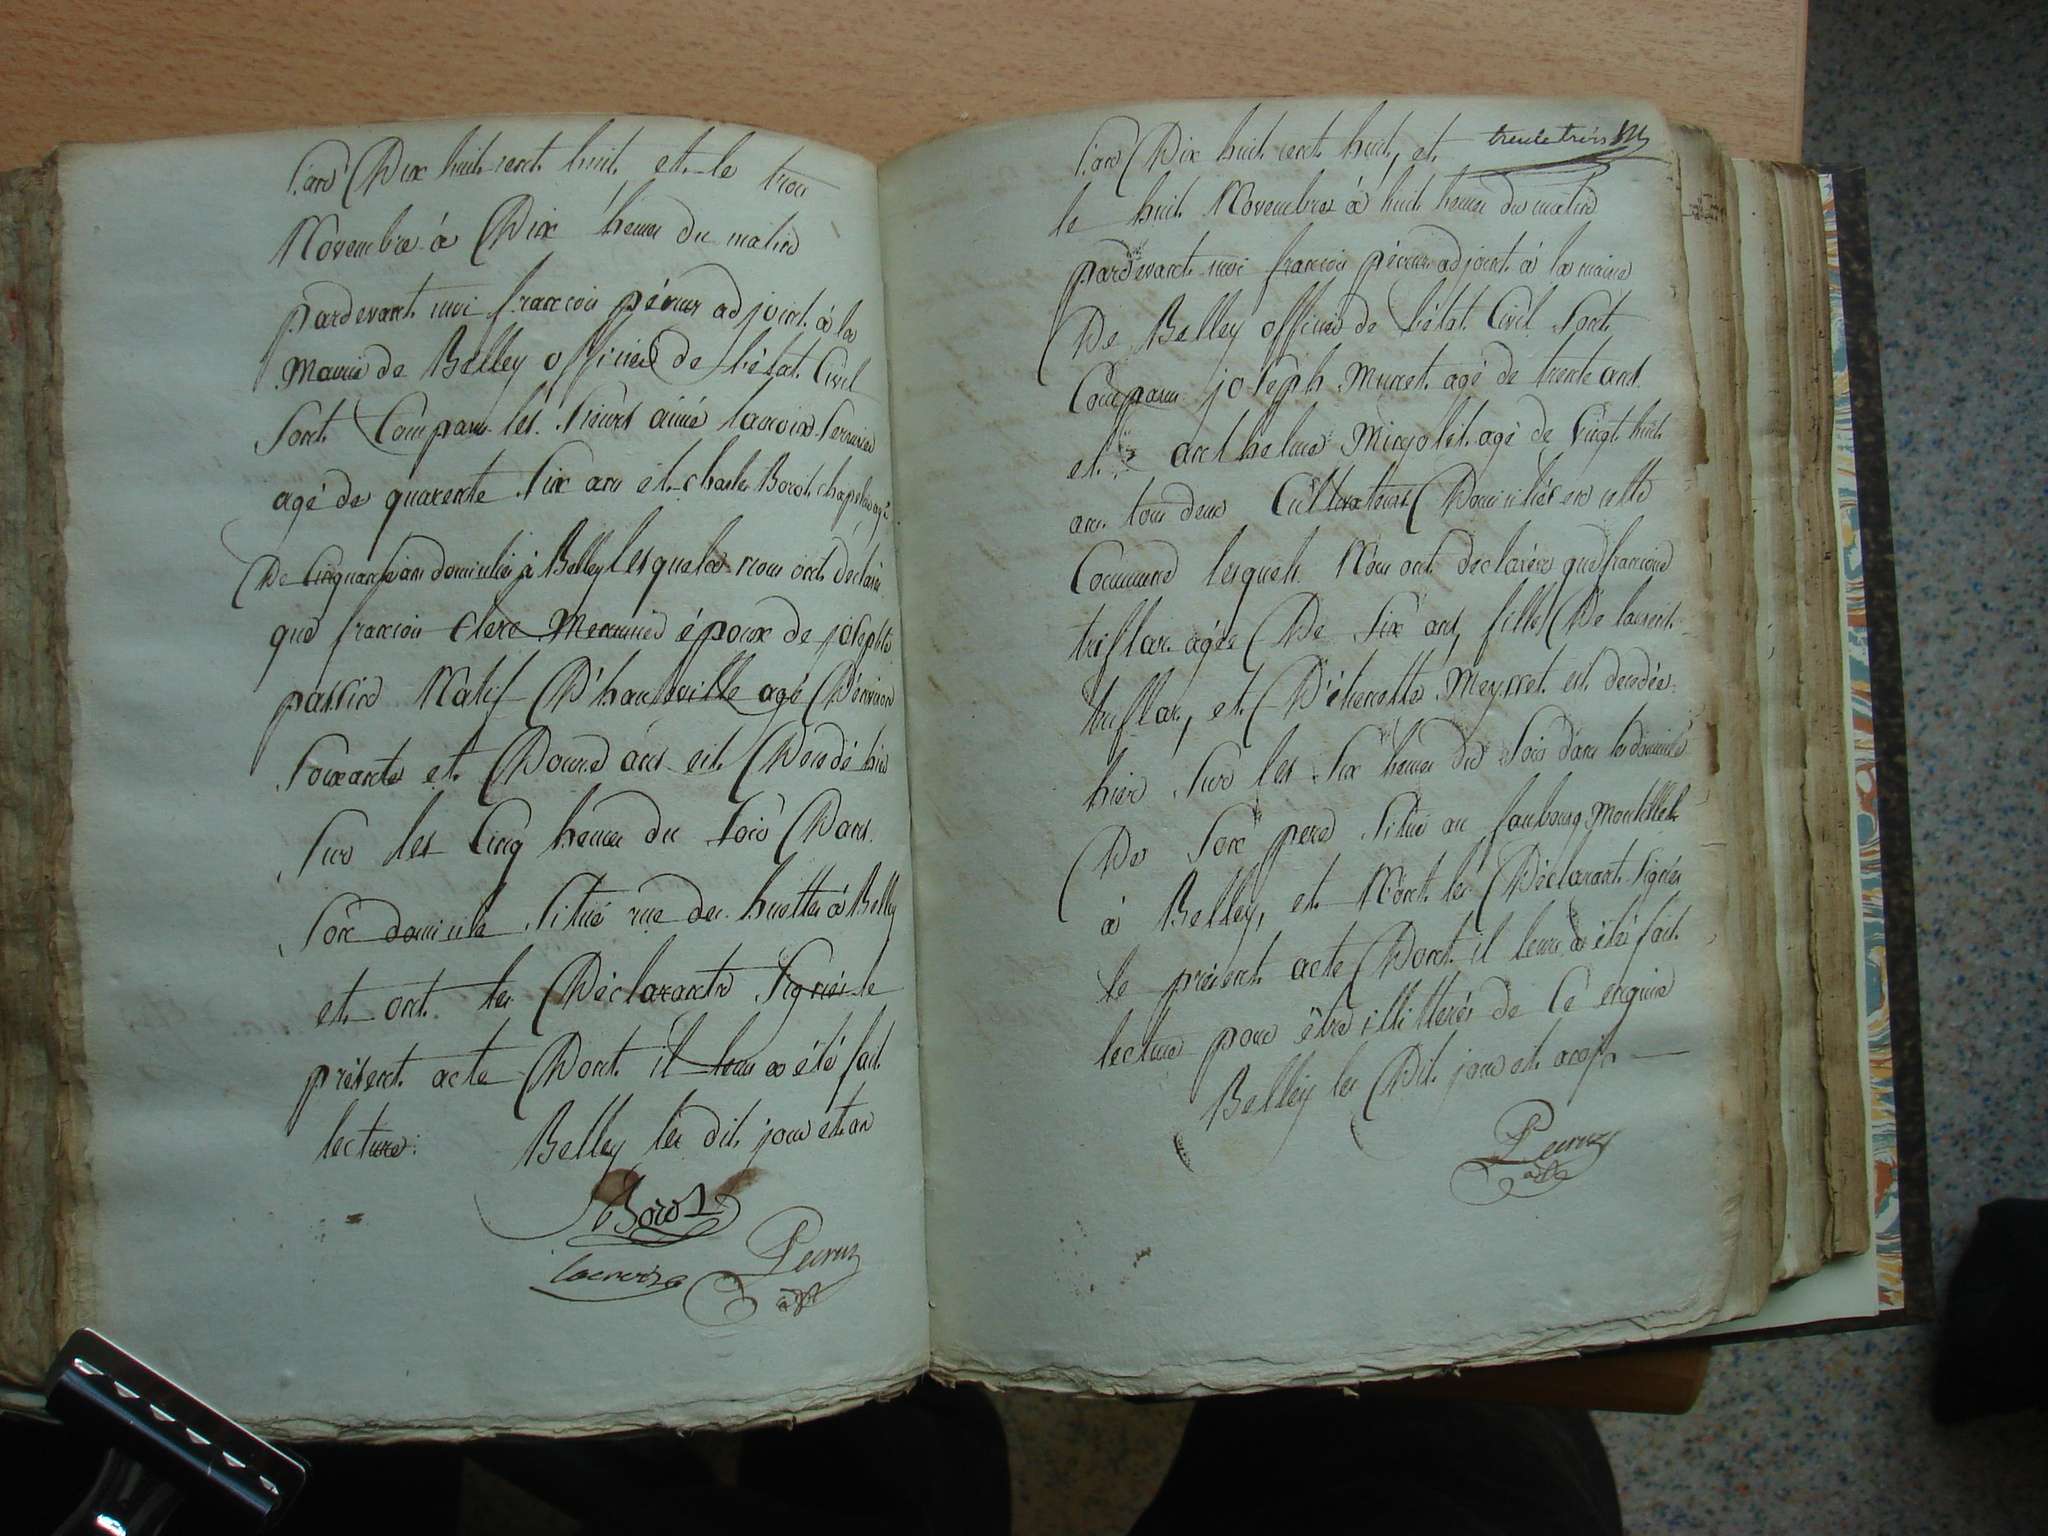 L'an Dix huit cent huit et le trois
Novembre à Dix heures du matin
pardevant moi françois adjoint à la
Mairie de Belley officier de l'état Civil
Sont Comparus les Sieurs aimé lacroix Serrurier
agé de quarente Six ans et charles Borot chapelier agé
De Cinquante ans domiciliés à Belley Lesquels nous ont déclarés
que françois Clerc Menuisier époux de josephte
passin Natif D'hauteville agé D'environ
Soixante et Douze ans est Décédé hier
Sur les Cinq heures du Soir Dans
Son domicile Situé rue des à Belley
et ont les Déclarants Signés le
présent acte Dont il leur a été fait
lecture. Belley les dit jour et an
Borot
lacroix
adjt
trente trois
L'an Dix huit cent huit, et
le huit Novembre à huit heures du matin
pardevant moi françois adjoint à la mairie
De Belley officier de l'état Civil Sont
Comparus joseph Murret agé de trente ans
et anthelme agé de vingt huit
ans tous deux Cultivateurs Domiciliés en cette
Commune lesquels Nous ont declarés que francoise
triflan agée De Six ans, fille De laurent
triflan, et D'étiennette Meysset est decedée
hier Sur les Six heures du Soir dans le domicile
De Son pere Situé au faubourg
à Belley, et N'ont les Déclarant Signés
le présent acte Dont il leur a été fait
lecture pour être illitterés de Ce enquis
Belley les Dit jour et an
adjt